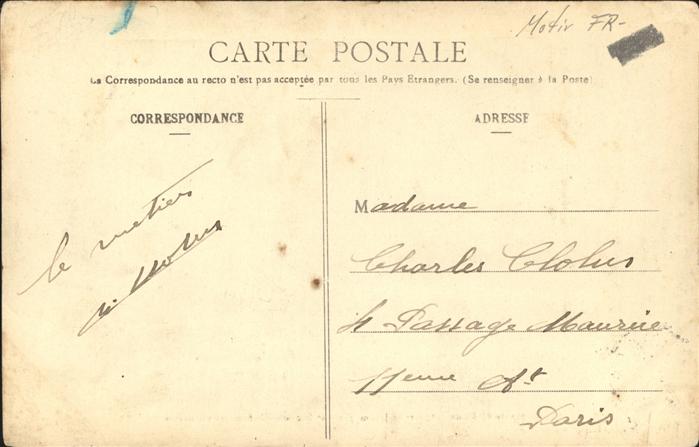 Motiv FR-
CARTE POSTALE
La Correspondance au recto n'est pas acceptée par tous les Pays Etrangers. (Se renseigner à la Poste)
CORRESPONDANCE
le metier
ADRESSE
Madame
Charles Clolus
4 Passage Maurice
11eme Ar.t
Paris